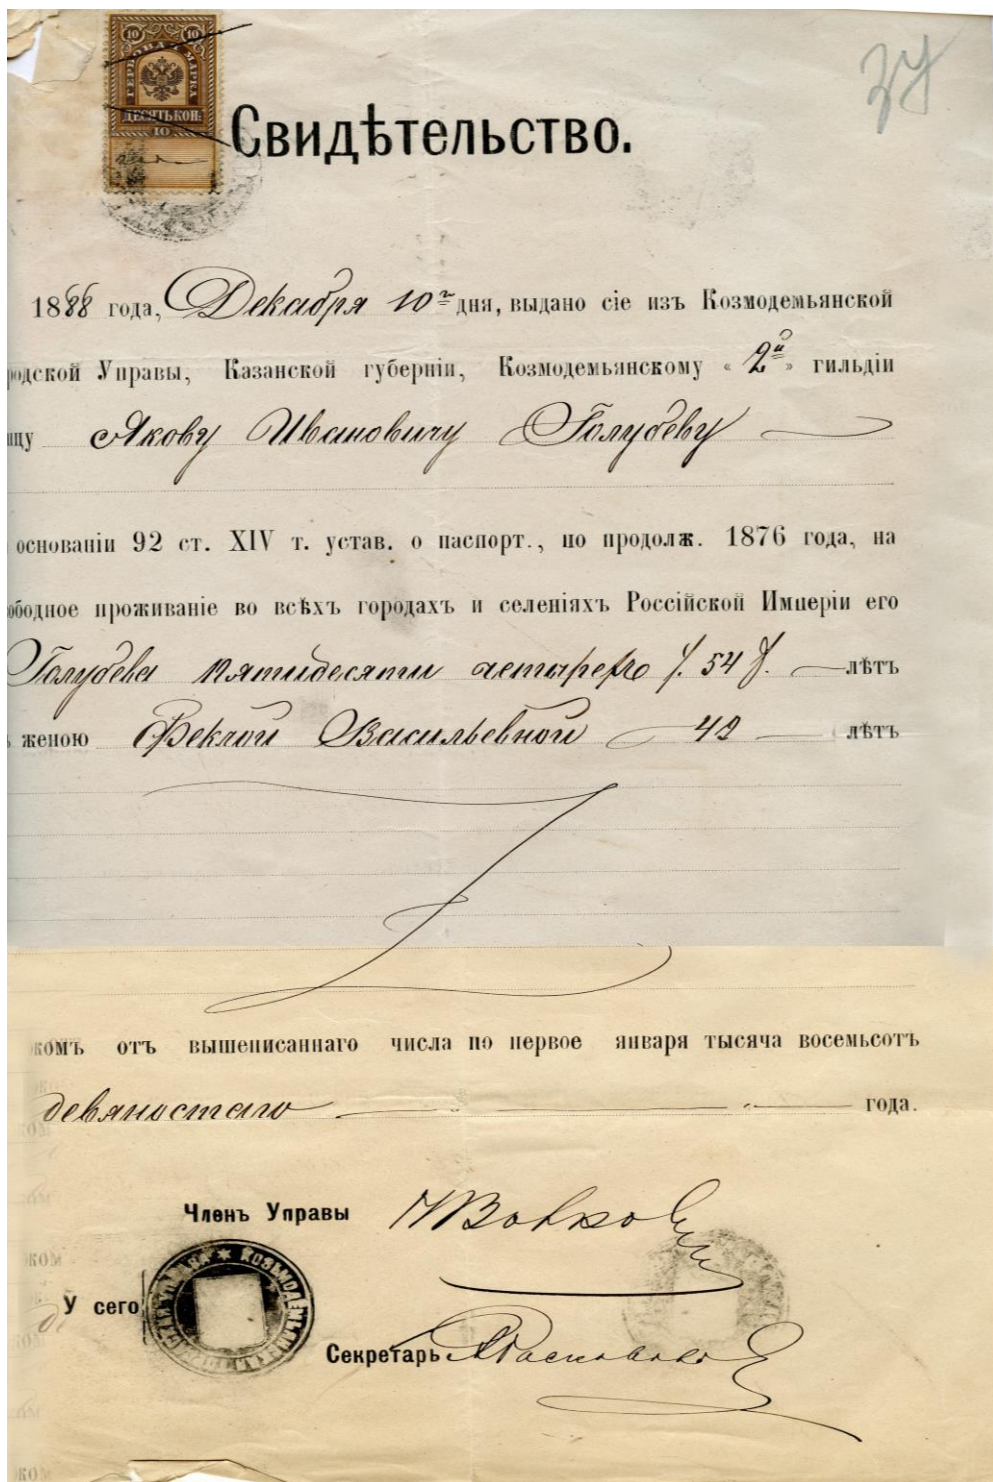 10 10
ГЕРБОВАЯ МАРКА
ДЕСЯТЬ КОП.
10
Свидѣтельство.
1888 года, Декабря 10го дня, выдано сіе изъ Козмодемьянской
родской Управы, Казанской губерніи, Козмодемьянскому « 2й » гильдіи
пцу Якову Ивановичу Голубеву
основаніи 92 ст. XIV т. устав. о паспорт., по продолж. 1876 года, на
ободное проживаніе во всѣхъ городахъ и селеніяхъ Россійской Имперіи его
Голубева пятидесяти четырехъ /. 54 /. лѣтъ
женою Феклой Васильевной 42 лѣтъ
комъ отъ вышеписаннаго числа по первое января тысяча восемьсотъ
девяностаго года.
Членъ Управы
У сего
Секретарь